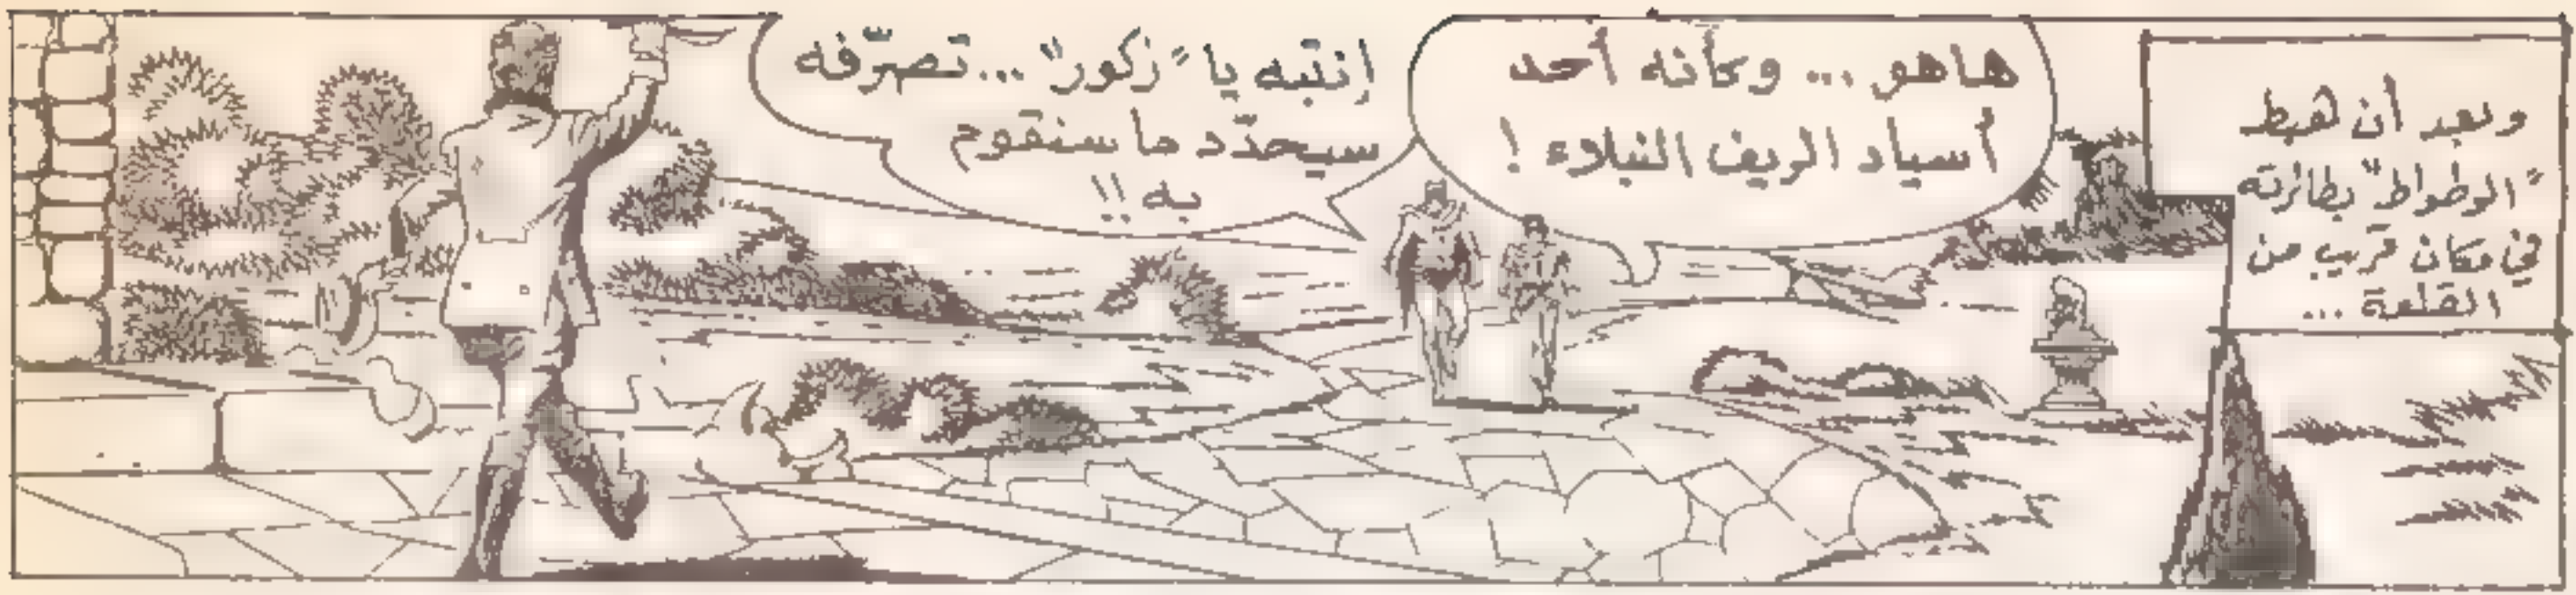 وبعد أن هبط
"الوطواط" بطائرته
في مكان قريب من
القلعة ...
هاهو ... وكأنه أحد
أسياد الريف النبلاء !
إنتبه يا "زكور" ... تصرّفه
سيحدّد ما سنقوم
به !!